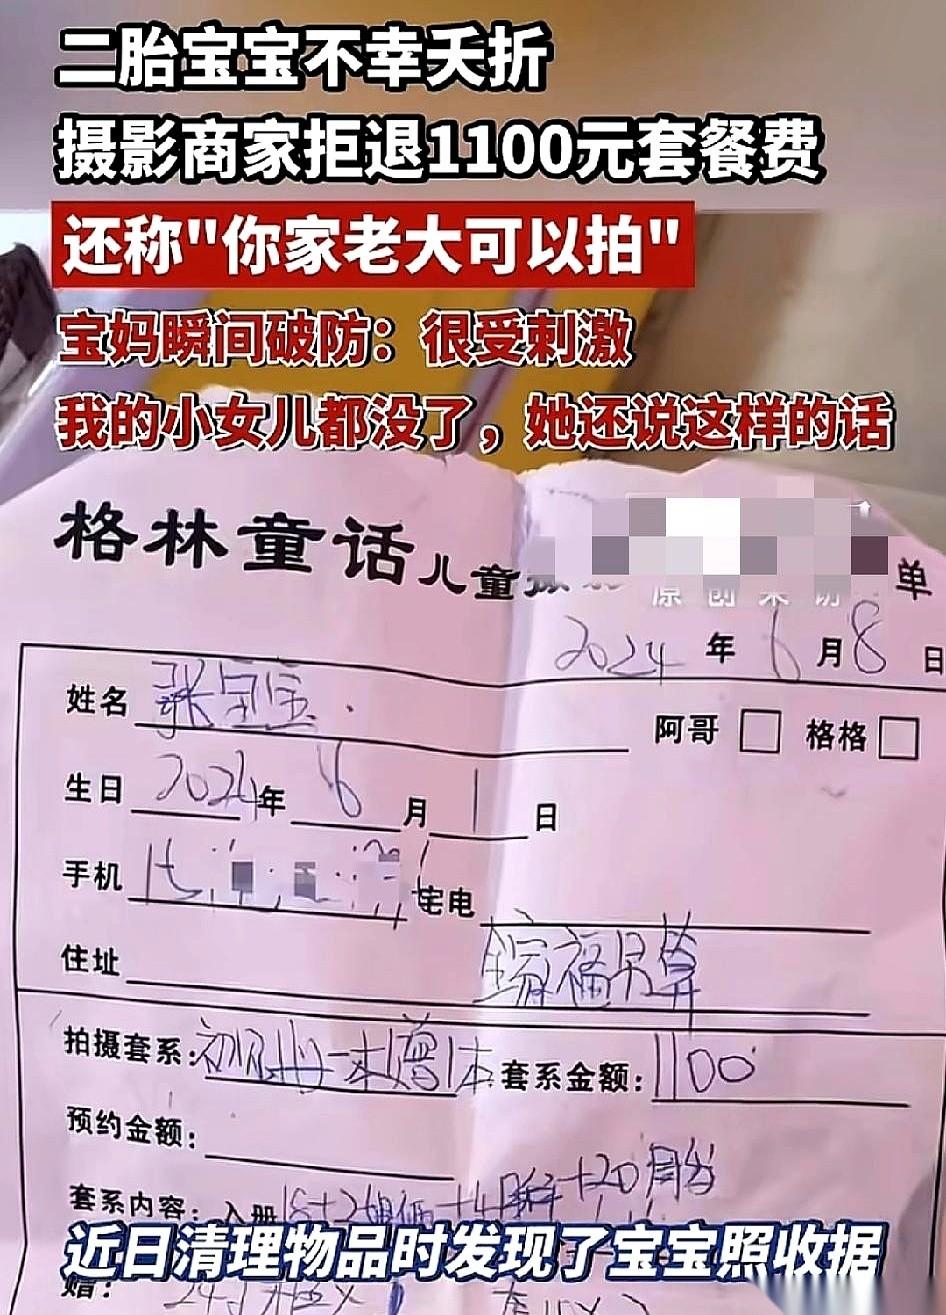 二胎宝宝不幸夭折
摄影商家拒退1100元套餐费
还称"你家老大可以拍"
宝妈瞬间破防：很受刺激
我的小女儿都没了，她还说这样的话
格林童话儿童摄 单
原创采访
2024年6月8日
姓名 张宝宝 阿哥 格格
生日 2024年6月1日
手机 宅电
住址
拍摄套系: 一本赠1本 套系金额: 1100
预约金额:
套系内容: 入册
近日清理物品时发现了宝宝照收据
赠: